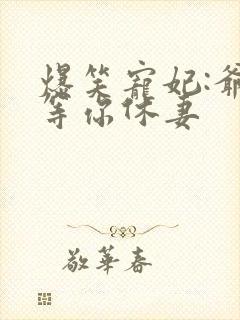 爆笑寵妃:爺
等你休妻
敬華春